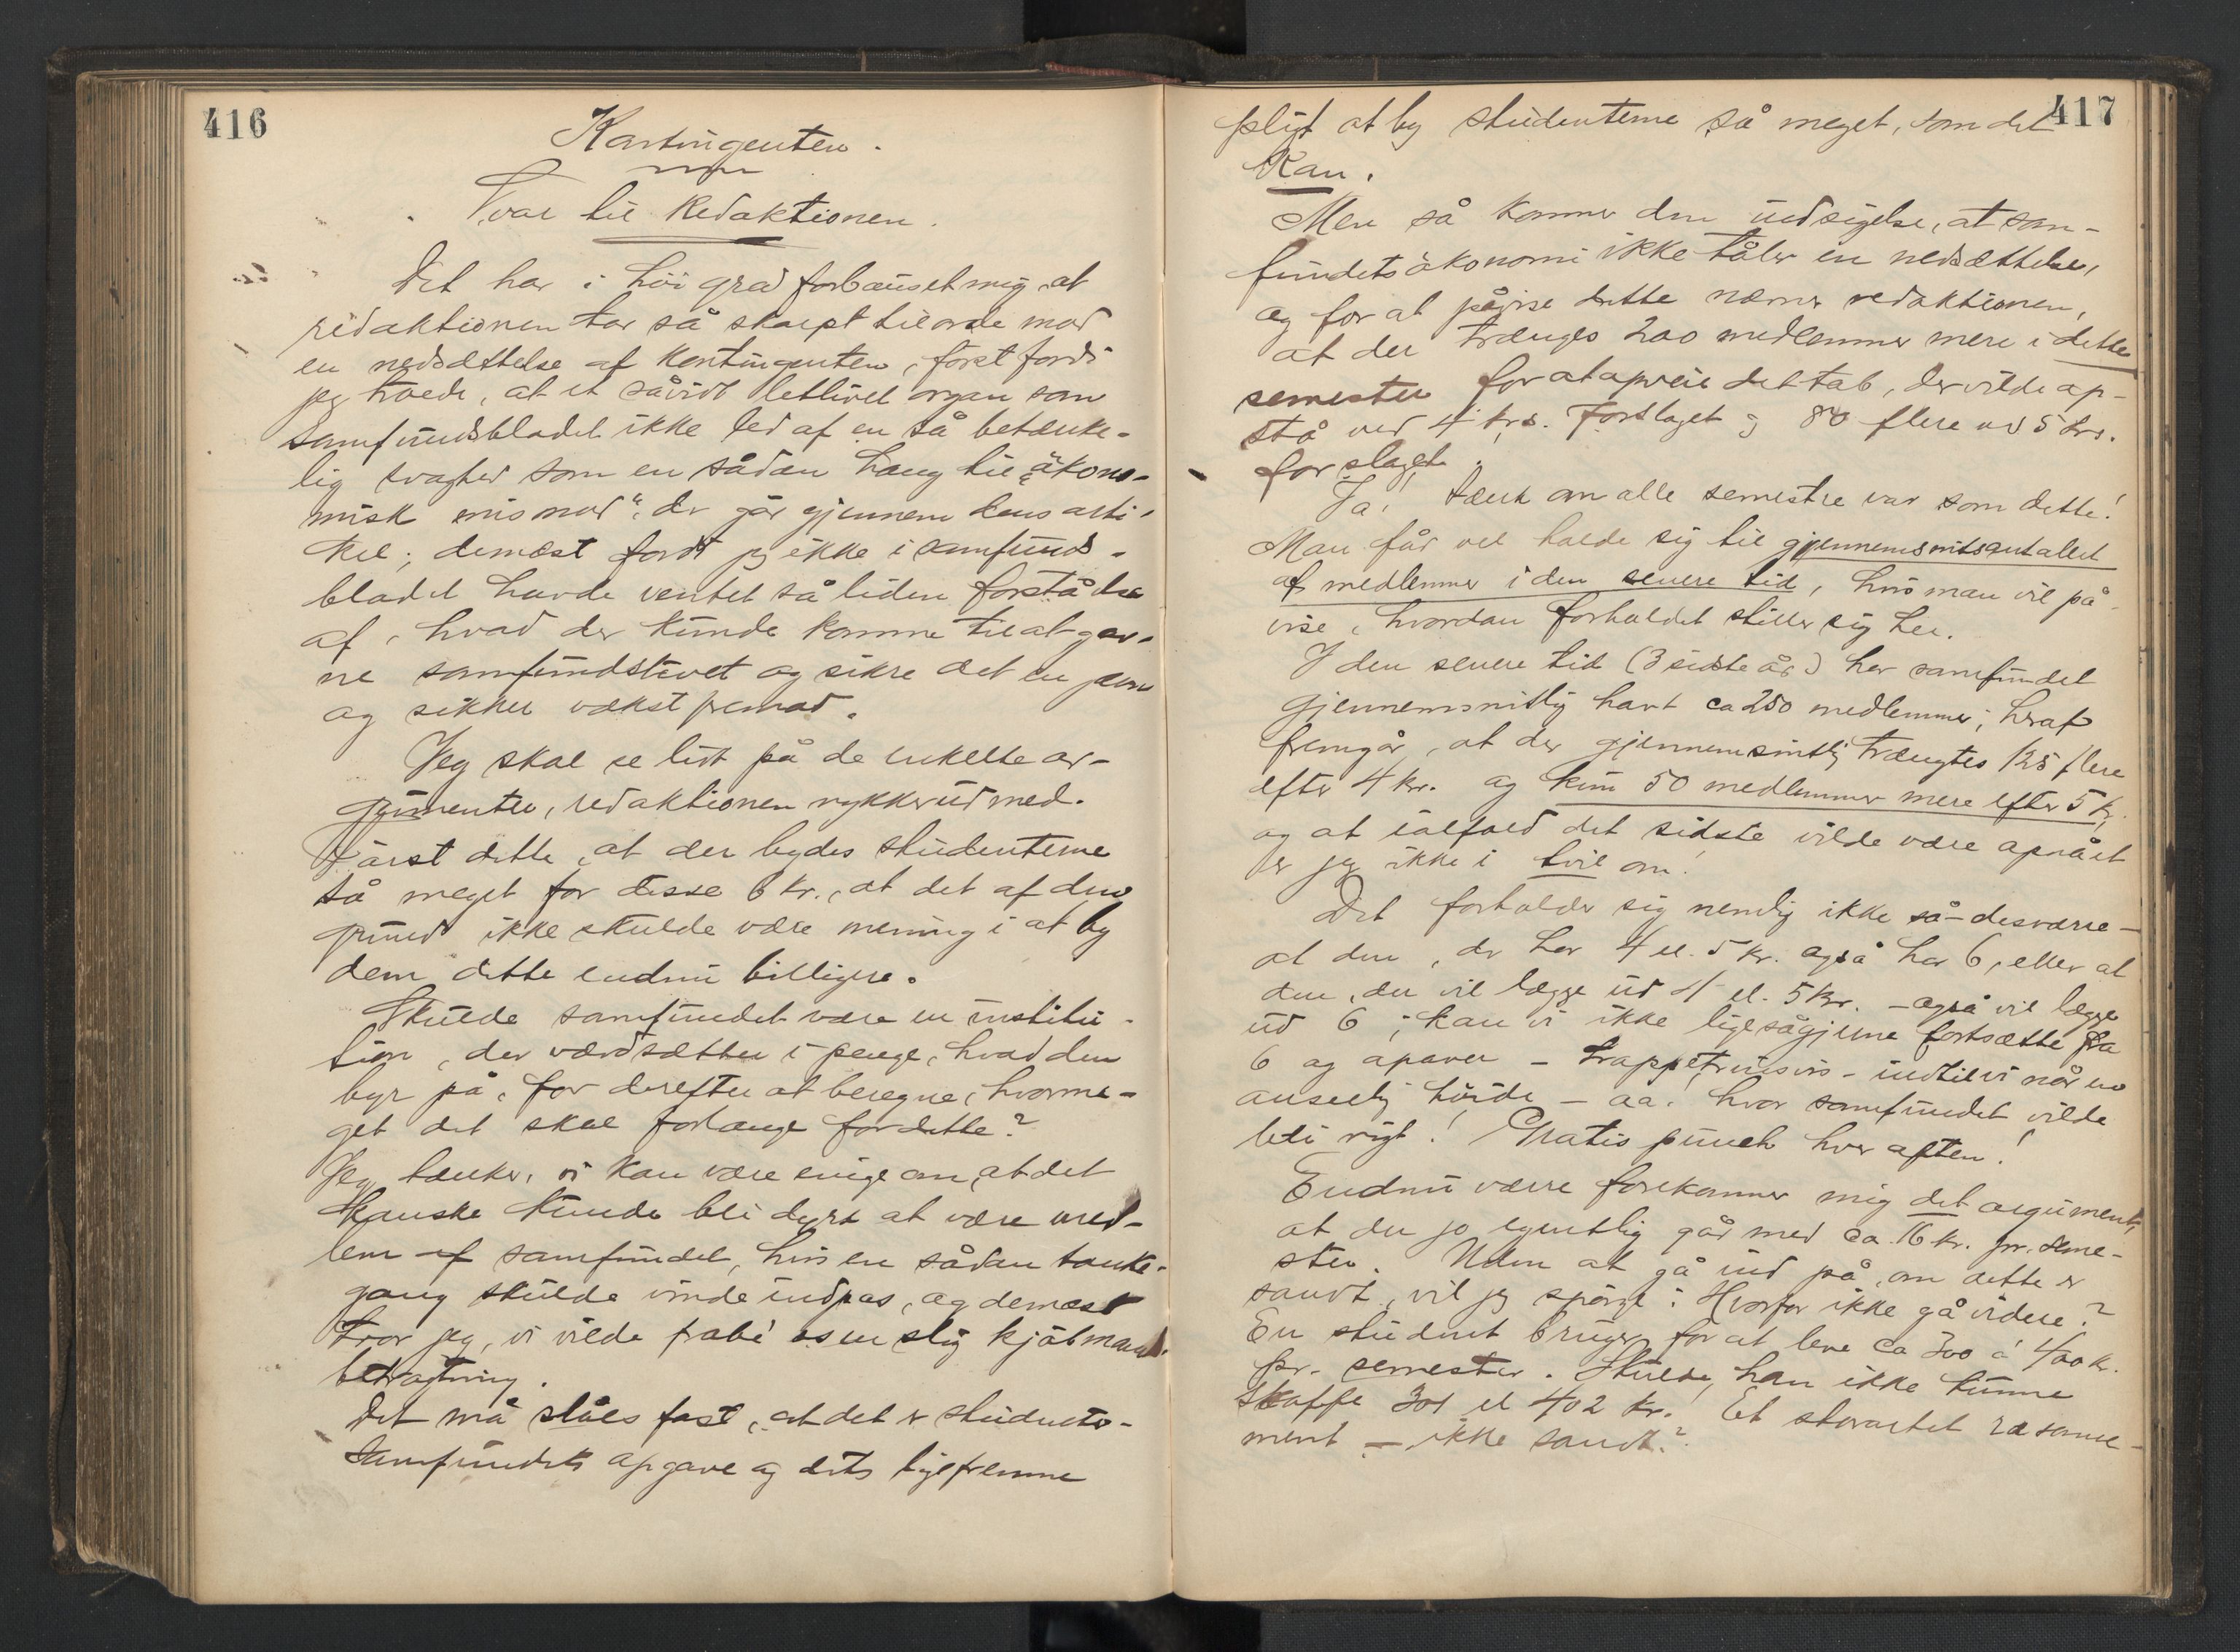 416
Kontingenten.
Svar til Redaktionen.
Det har i höi grad forbauset mig, at
redaktionen tar så skarpt tilorde mod
en nedsættelse af kontingenten, först fordi
jeg troede, at et såvidt letlivet organ som
Samfundsbladet ikke led af en så betænke-
lig svaghed som en sådan hang til „ökono-
misk mismod", der går gjennem dens arti-
kel; dernæst fordi jeg ikke i samfunds-
bladet havde ventet så liden forståelse
af, hvad der kunde komme til at gav-
ne samfundslivet og sikre det en jevn
og sikker vækst fremad.
Jeg skal se lidt på de enkelte ar-
gumenter, redaktionen rykker ud med.
Först dette, at der bydes studenterne
så meget for disse 6 kr., at det af den
grund ikke skulde være mening i at by
dem dette endnu billigere.
Skulde samfundet være en institu-
tion, der værdsætter i penge, hvad den
byr på, for derefter at beregne, hvorme-
get det skal forlange for dette?
Jeg tænker, vi kan være enige om, at det
kanske kunde bli dyrt at være med-
lem af samfundet, hvis en sådan tanke-
gang skulde vinde indpas, og dernæst
tror jeg, vi vilde frabe' os en slig kjöbmands-
betragtning.
Det må slåes fast, at det er Student-
Samfundets opgave og dets ligefremme
417
pligt at by studenterne så meget, som det
kan.
Men så kommer den indsigelse, at sam-
fundets ökonomi ikke tåler en nedsættelse,
og for at påvise dette nævner redaktionen,
at der trænges 200 medlemmer mere i dette
semester for at opveie det tab, der vilde op-
stå ved 4 krs. Forslaget og 80 flere ved 5 krs.
forslaget.
Ja, tænk om alle semestre var som dette!
Man får vel holde sig til gjennemsnitsantallet
af medlemmer i den senere tid, hvis man vil på-
vise, hvordan forholdet stiller sig her.
I den senere tid (3 sidste år) har samfundet
gjennemsnitlig havt ca 250 medlemmer; heraf
fremgår, at der gjennemsnitlig trængtes 125 flere
efter 4 kr. og kun 50 medlemmer mere efter 5 kr.,
og at ialfald det sidste vilde være opnået
er jeg ikke i tvil om!
Det forholder sig nemlig ikke så – desværre –
at den, der har 4 el. 5 kr. også har 6, eller at
den, der vil lægge ud 4 el. 5 kr. – også vil lægge
ud 6; kan vi ikke ligesågjerne fortsætte fra
6 og opover – trappetrinsvis – indtil vi når en
anseelig höide – aa! hvor samfundet vilde
bli rigt! Gratis punch hver aften!
Endnu værre forekommer mig det argument,
at der jo egentlig går med ca. 16 kr. pr. seme-
ster. Uden at gå ind på, om dette er
sandt, vil jeg spörge: Hvorfor ikke gå videre?
En student bruger for at leve ca 300 à 400 kr.
pr. semester. Skulde han ikke kunne
skaffe 301 el 402 kr.! Et storartet rasonne-
ment – ikke sandt?